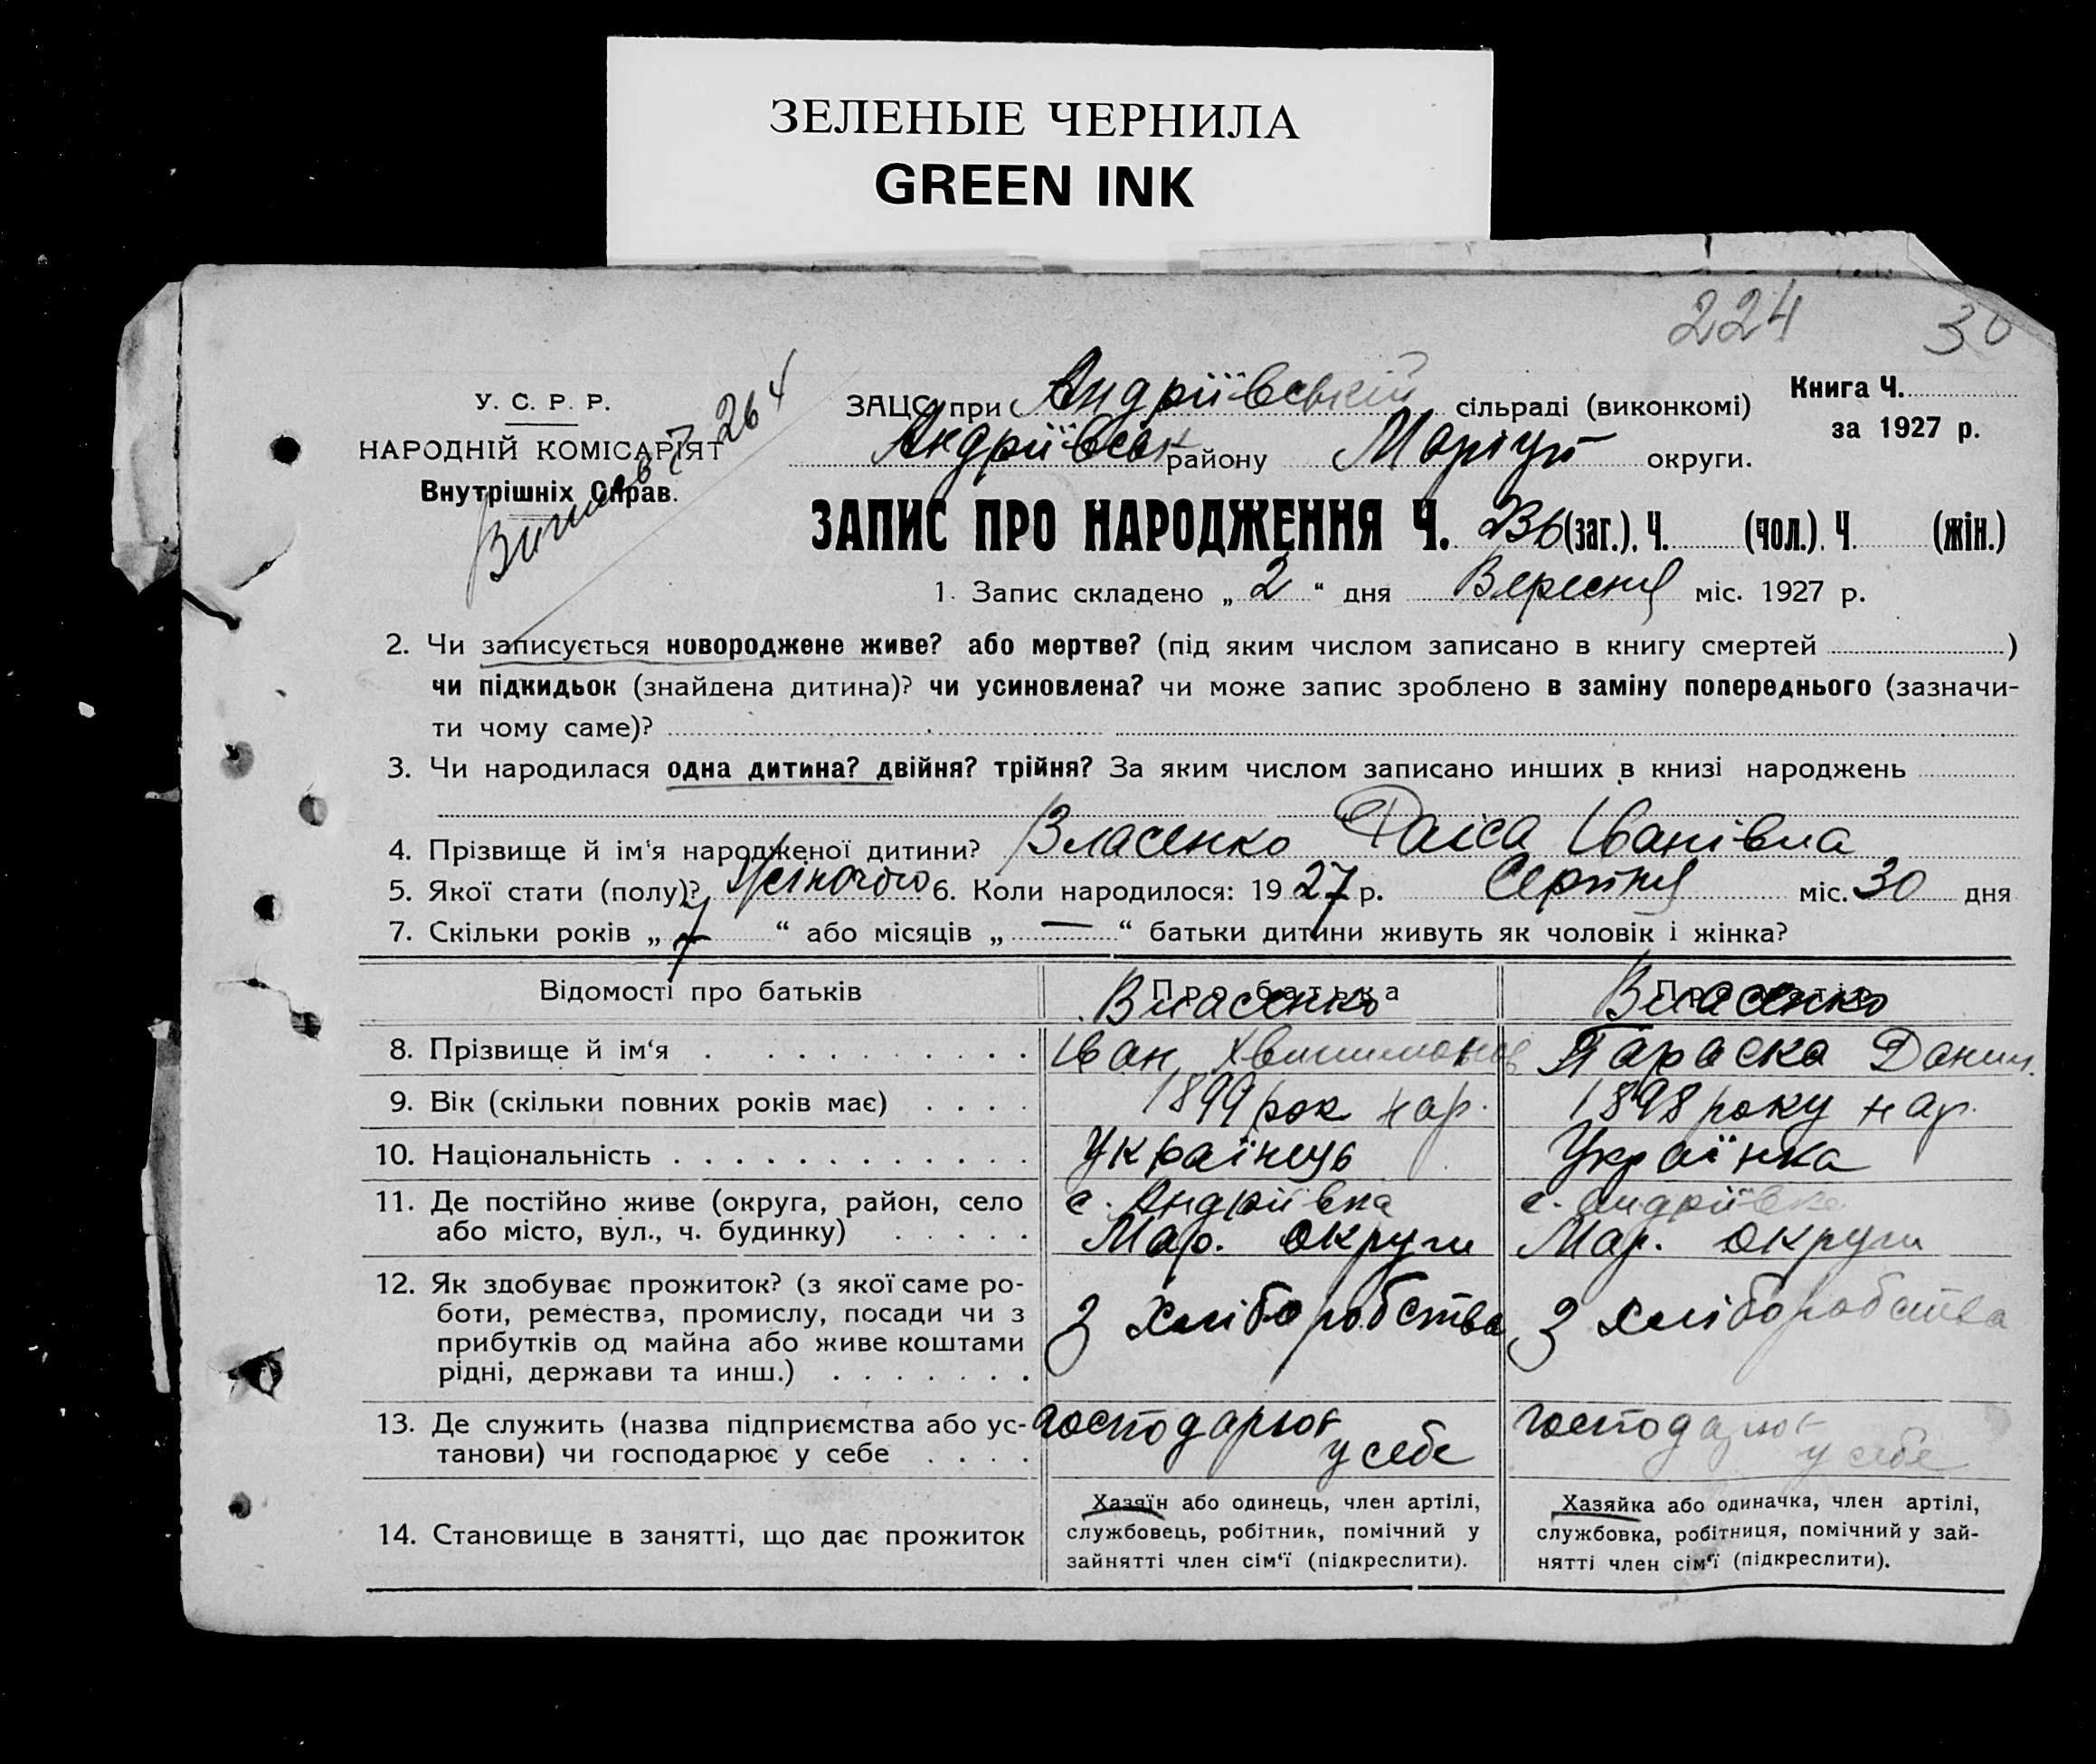 ЗЕЛЕНЫЕ ЧЕРНИЛА
GREEN INK
224 30
У. С. Р. Р.
НАРОДНІЙ КОМІСАРІЯТ
Внутрішніх Справ.
264
ЗАЦС при Андріївській сільраді (виконкомі)
Книга Ч.
за 1927 р.
Андріївськ району Маріуп округи.
ЗАПИС ПРО НАРОДЖЕННЯ Ч. 236 (заг.). Ч. (чол.). Ч. (жін.)
1. Запис складено „ 2 “ дня Вересня міс. 1927 р.
2. Чи записується новороджене живе? або мертве? (під яким числом записано в книгу смертей )
чи підкидьок (знайдена дитина)? чи усиновлена? чи може запис зроблено в заміну попереднього (зазначи-
ти чому саме)?
3. Чи народилася одна дитина? двійня? трійня? За яким числом записано инших в книзі народжень
4. Прізвище й ім'я народженої дитини? Власенко Раїса Іванівна
5. Якої стати (полу)? Жіночого 6. Коли народилося: 1927 р. Серпня міс. 30 дня
7. Скільки років „ 7 “ або місяців „ — “ батьки дитини живуть як чоловік і жінка?
Відомості про батьків Про батька Про матір
Власенко Власенко
8. Прізвище й ім'я Іван Параска Данил.
9. Вік (скільки повних років має) 1899 рок нар. 1898 року нар.
10. Національність Українець Українка
11. Де постійно живе (округа, район, село с. Андріївка с. Андріївка
або місто, вул., ч. будинку) Мар. округи Мар. округи
12. Як здобуває прожиток? (з якої саме ро-
боти, ремества, промислу, посади чи з
прибутків од майна або живе коштами
рідні, держави та инш.)
З хліборобства З хліборобства
13. Де служить (назва підприємства або ус- господарює господарює
танови) чи господарює у себе у себе у себе
14. Становище в занятті, що дає прожиток
Хазяїн або одинець, член артілі,
службовець, робітник, помічний у
зайнятті член сім'ї (підкреслити).
Хазяйка або одиначка, член артілі,
службовка, робітниця, помічний у зай-
нятті член сім'ї (підкреслити).